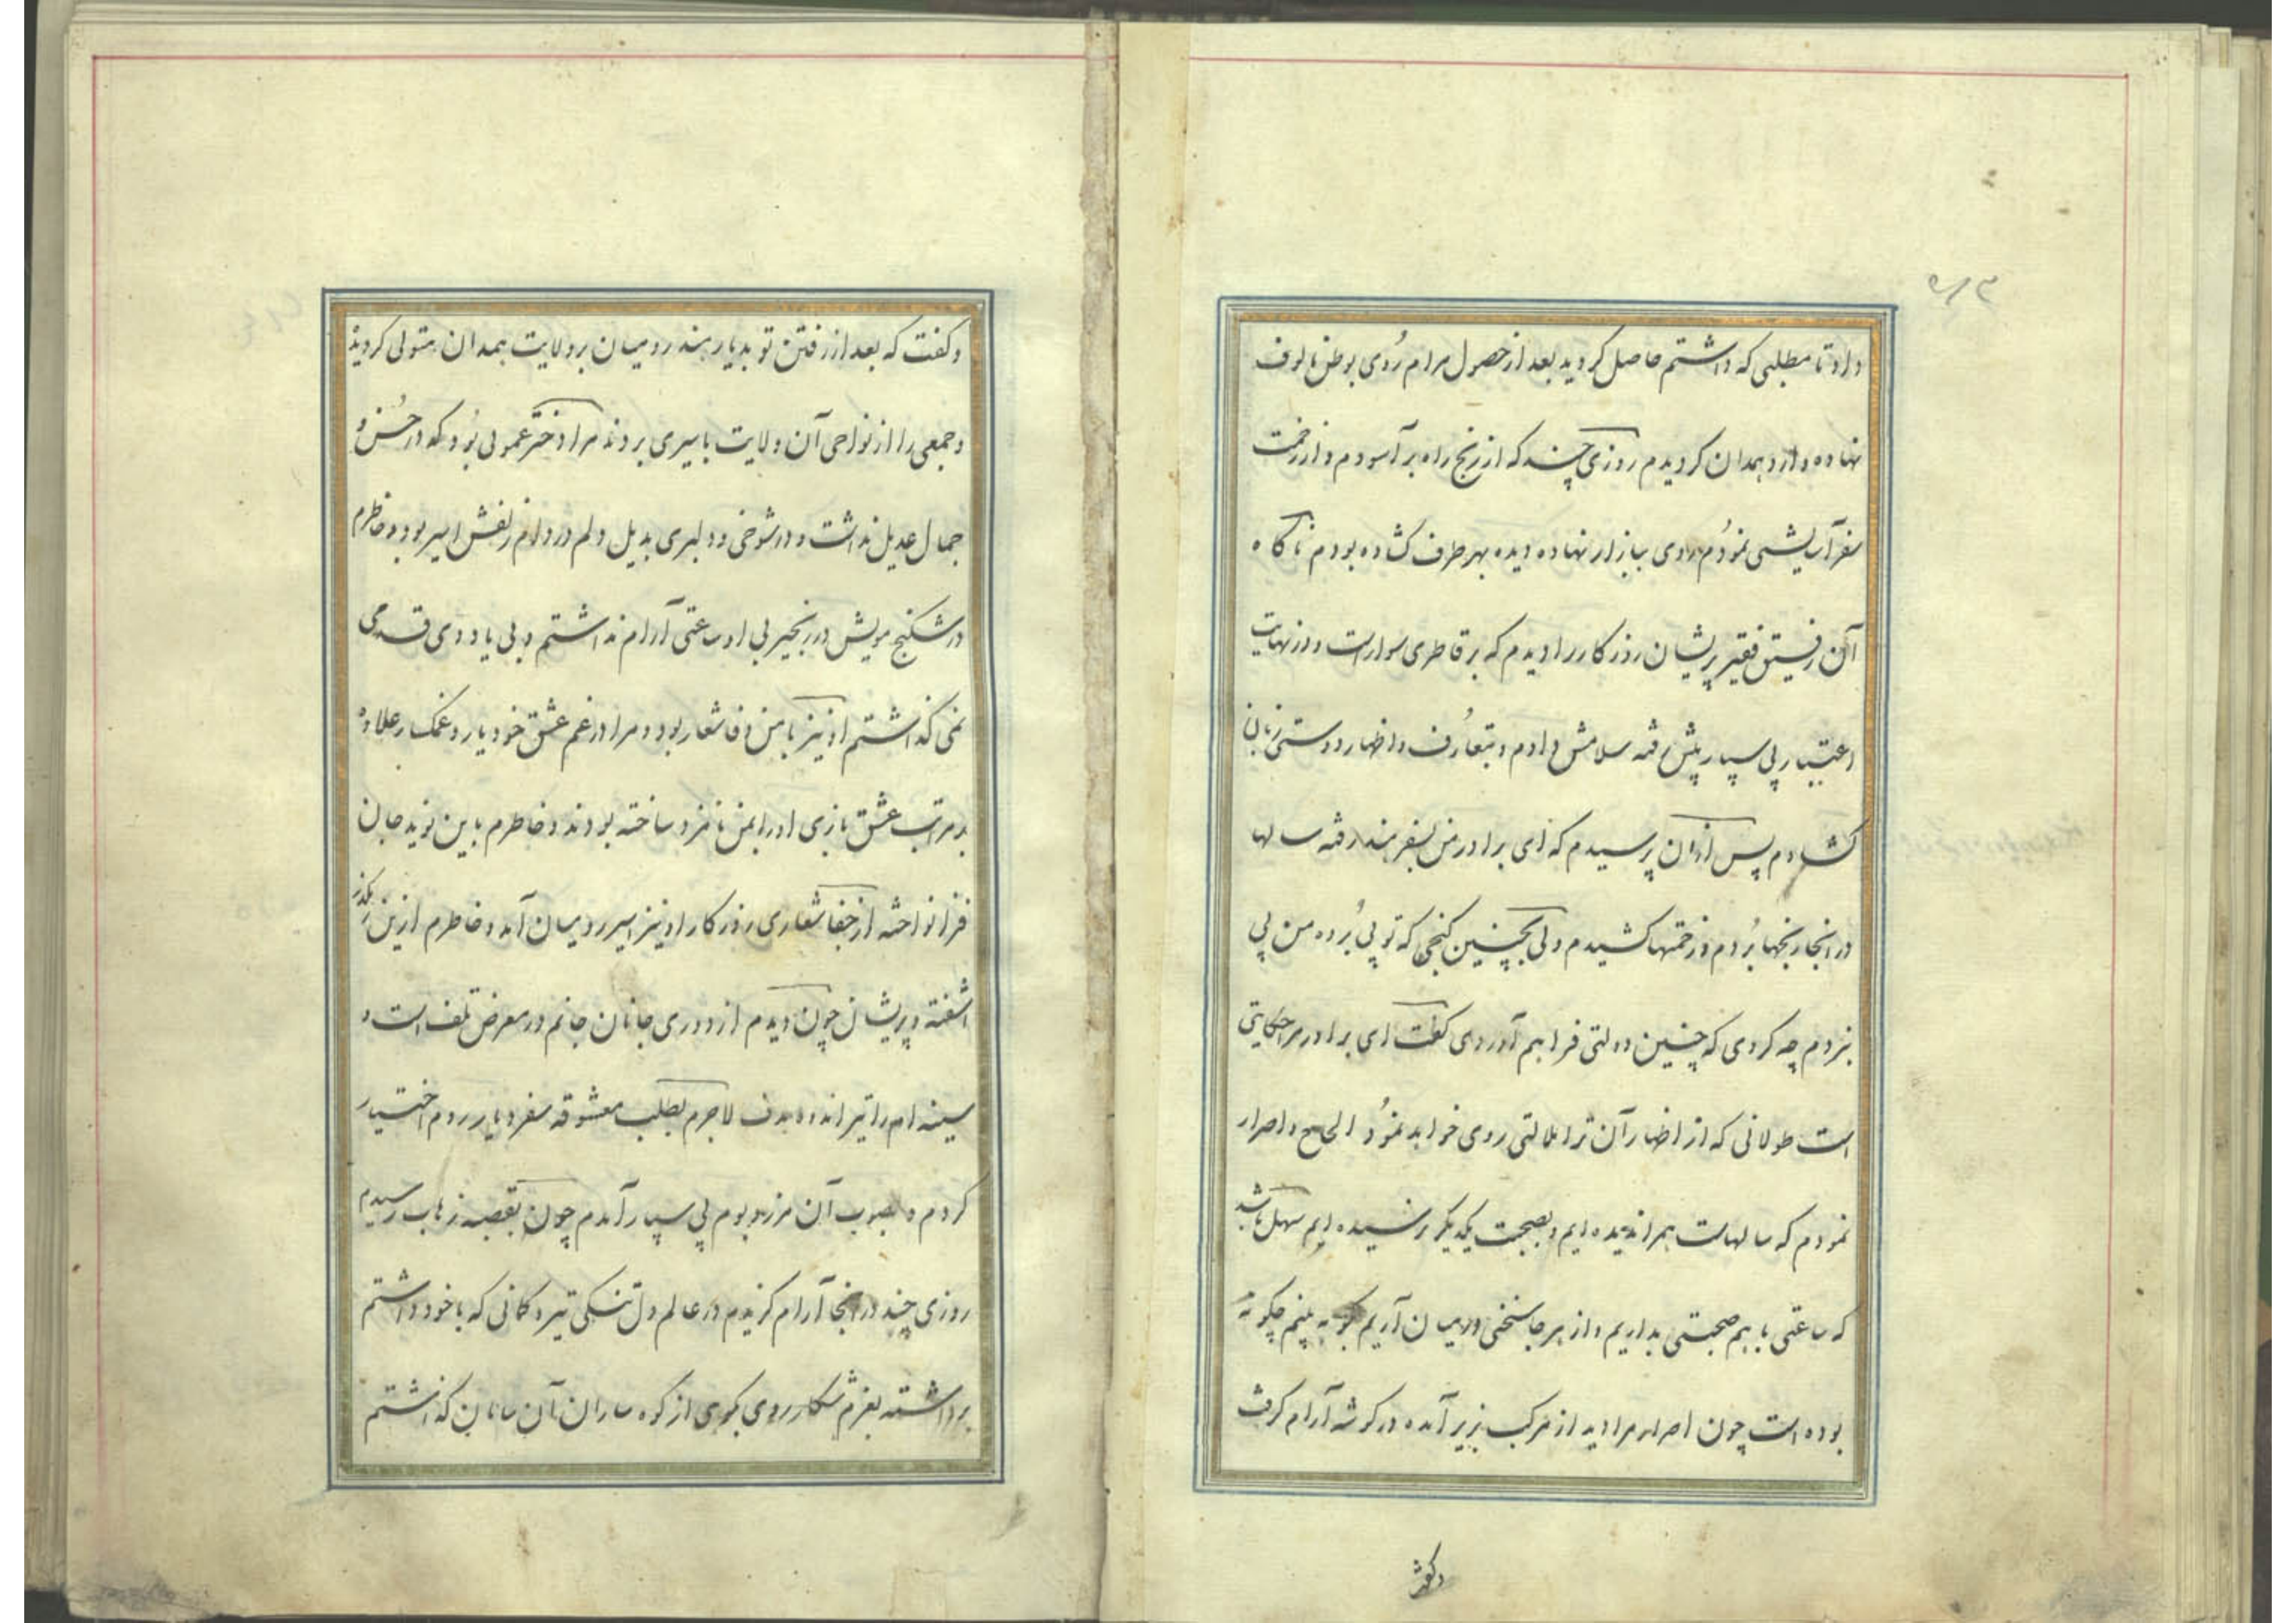 داد تا مطلبی که داشتم حاصل کردید بعد از حصول مرام رُوی بوطن مالوف
نهاده وارد همدان کردیدم روزی چند که از رنج راه بر آسودم و از زحمت
سفر آسایشی نمودُم روی ببازار نهاده دیده بهر طرف کشاده بودم ناکاه
آن رفیق فقیر پریشان روزکار را دیدم که بر قاطری سوار است و در نهایت
اعتبار پی سپار پیش رفته سلامش دادم و بتعارُف و اظهار دوستی زبان
کشادم پس از آن پرسیدم که ای برادر من بسفر هند رفته سالها
در انجا رنجها بُردم و زحمتها کشیدم ولی بچنین کنجی که تو پی بُرده من پی
نبردم چه کردی که چنین دولتی فراهم آوردی کفت ای برادر مرا حکایتی
است طولانی که از اظهار آن ترا ملالتی روی خواهد نمُود الحاح و اصرار
نمودم که سالهاست همرا ندیده ایم و بصحبت یکدیکر نرسیده ایم سهل باشد
که ساعتی با هم صحبتی بداریم و از هر جا سخنی در میان آریم کو به بینم چکونه
بوده است چون اصرار مرا دید از مرکب بزیر آمده در کوشه آرام کرفت
وکفت
و کفت که بعد از رفتن تو بدیار هند رومیان بر ولایت همدان متولی کردید
و جمعی را از نواحی آن ولایت باسیری بردند مرا دختر عمویی بُود که در حُسن و
جمال عدیل نداشت و در شوخی و دلبری بدیل دلم در دام زلفش اسیر بود و خاطرم
در شکنج مویش در زنجیر بی او ساعتی آرام نداشتم و بی یاد وی قدمی
نمی کذاشتم او نیز با من وفا شعار بود و مرا در غم عشق خود یار و غمکسار علاوه
بر مراتب عشق بازی او را بمن نامزد ساخته بودند و خاطرم باین نوید جان
فزا نواخته از جفا شعاری روزکار او نیز اسیر رومیان آمد و خاطرم ازین رهکذر
اشفته و پریشان چون دیدم از دوری جانان جانم در معرض تلف است و
سینه ام را تیر اندوه هدف لاجرم بطلب معشوقه سفر دیار روم اختیار
کردم و بصوب آن مرز و بوم پی سپار آمدم چون بقصبه زهاب رسیدم
روزی چند در انجا آرام کزیدم در عالم دل تنکی تیر و کمانی که با خود داشتم
برداشته بعزم شکار روی بکوی از کوه ساران آن سامان کذاشتم